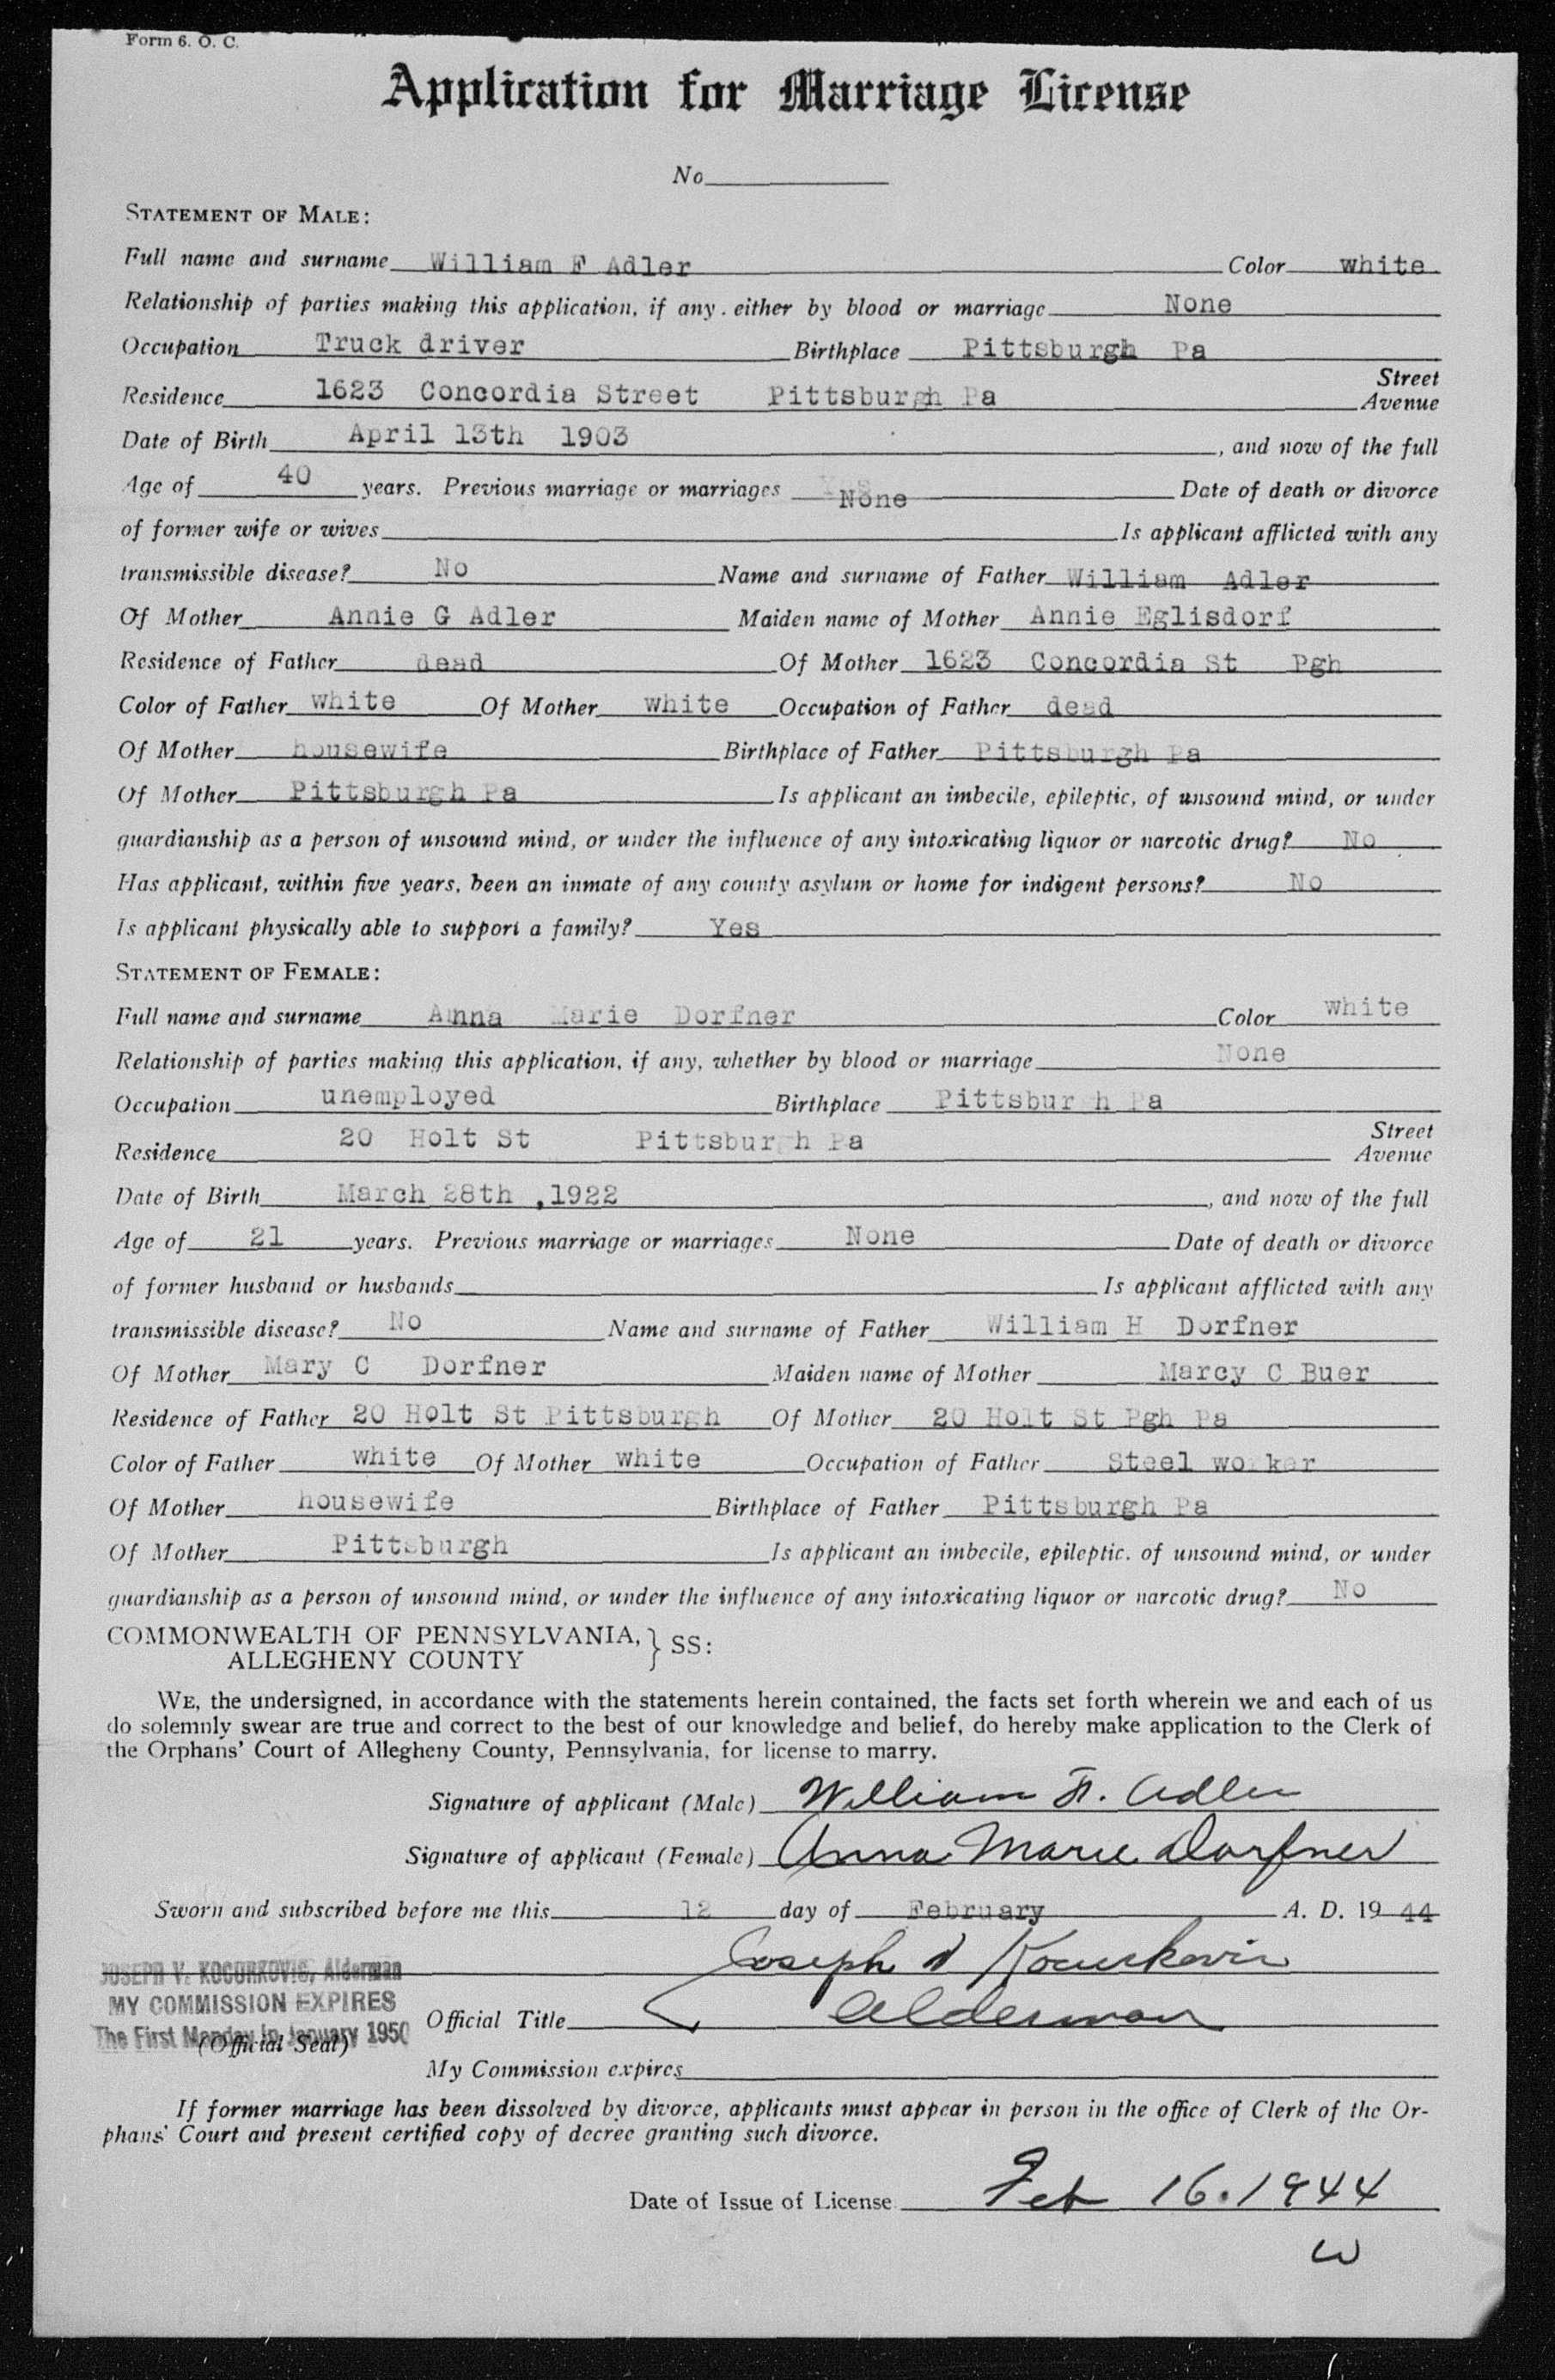 Form 6. O. C.
Application for Marriage License
No
STATEMENT OF MALE:
Full name and surname William F Adler Color white
Relationship of parties making this application, if any, either by blood or marriage None
Occupation Truck driver Birthplace Pittsburgh Pa
Street
Residence 1623 Concordia Street Pittsburgh Pa
Avenue
Date of Birth April 13th 1903 , and now of the full
Age of 40 years. Previous marriage or marriages None Date of death or divorce
of former wife or wives Is applicant afflicted with any
transmissible disease? No Name and surname of Father William Adler
Of Mother Annie G Adler Maiden name of Mother Annie Eglisdorf
Residence of Father dead Of Mother 1623 Concordia St Pgh
Color of Father white Of Mother white Occupation of Father dead
Of Mother housewife Birthplace of Father Pittsburgh Pa
Of Mother Pittsburgh Pa Is applicant an imbecile, epileptic, of unsound mind, or under
guardianship as a person of unsound mind, or under the influence of any intoxicating liquor or narcotic drug? No
Has applicant, within five years, been an inmate of any county asylum or home for indigent persons? No
Is applicant physically able to support a family? Yes
STATEMENT OF FEMALE:
Full name and surname Anna Marie Dorfner Color white
Relationship of parties making this application, if any, whether by blood or marriage None
Occupation unemployed Birthplace Pittsburgh Pa
Street
Residence 20 Holt St Pittsburgh Pa
Avenue
Date of Birth March 28th ,1922 , and now of the full
Age of 21 years. Previous marriage or marriages None Date of death or divorce
of former husband or husbands Is applicant afflicted with any
transmissible disease? No Name and surname of Father William H Dorfner
Of Mother Mary C Dorfner Maiden name of Mother Marcy C Buer
Residence of Father 20 Holt St Pittsburgh Of Mother 20 Holt St Pgh Pa
Color of Father white Of Mother white Occupation of Father Steel worker
Of Mother housewife Birthplace of Father Pittsburgh Pa
Of Mother Pittsburgh Is applicant an imbecile, epileptic, of unsound mind, or under
guardianship as a person of unsound mind, or under the influence of any intoxicating liquor or narcotic drug? No
COMMONWEALTH OF PENNSYLVANIA, } SS:
ALLEGHENY COUNTY
WE, the undersigned, in accordance with the statements herein contained, the facts set forth wherein we and each of us
do solemnly swear are true and correct to the best of our knowledge and belief, do hereby make application to the Clerk of
the Orphans' Court of Allegheny County, Pennsylvania, for license to marry.
Signature of applicant (Male) William F. Adler
Signature of applicant (Female) Anna Marie Dorfner
Sworn and subscribed before me this 12 day of February A. D. 19 44
JOSEPH V. KOCURKOVIC, Alderman Joseph V Kocurkovic
MY COMMISSION EXPIRES
Official Title Alderman
The First Monday in January 1950
(Official Seal)
My Commission expires
If former marriage has been dissolved by divorce, applicants must appear in person in the office of Clerk of the Or-
phans' Court and present certified copy of decree granting such divorce.
Date of Issue of License Feb 16. 1944
W